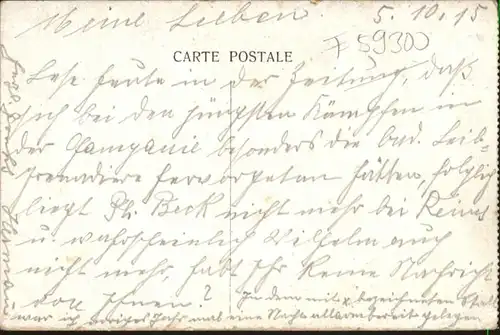 Meine Lieben 5.10.15
F 59300
CARTE POSTALE
Lese heute in der Zeitung, daß
sich bei den jüngsten Kämpfen in
der Champanie besonders die Bad. Leib-
grenadiere hervorgetan hätten, folglich
liegt Ph. Beck nicht mehr bei Reims
u. wahrscheinlich Wilhelm auch
nicht mehr, habt Ihr keine Nachricht
von Ihnen? In dem mit x bezeichneten Stall
war ich voriges Jahr mal eine Nacht allarmbereit gelegen
Herman